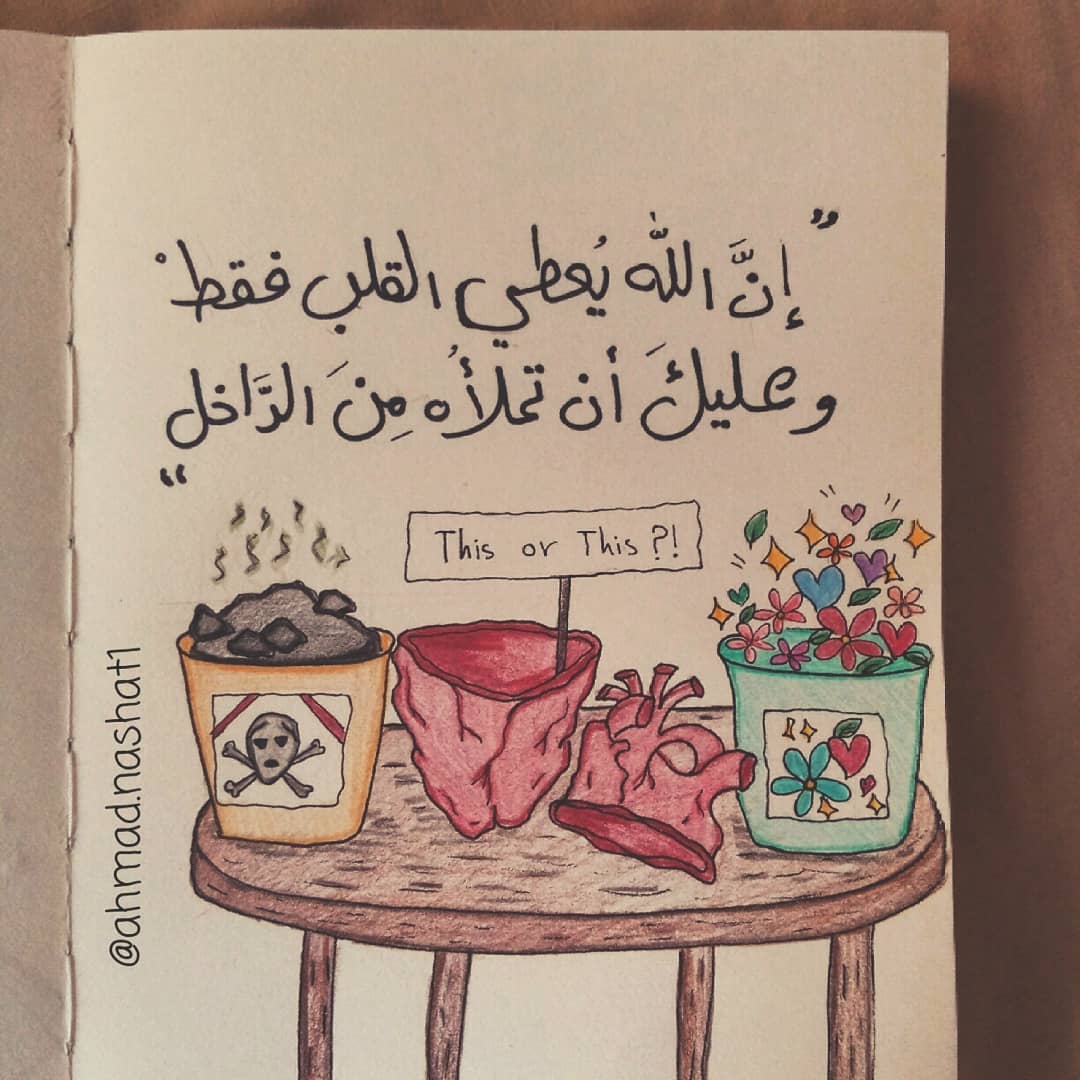 ” إنَّ اللّٰه يُعطي القلب فقطْ
وعليكَ أن تملأُه مِنَ الدَّاخل “
This or This ?!
@ahmad.nashat1